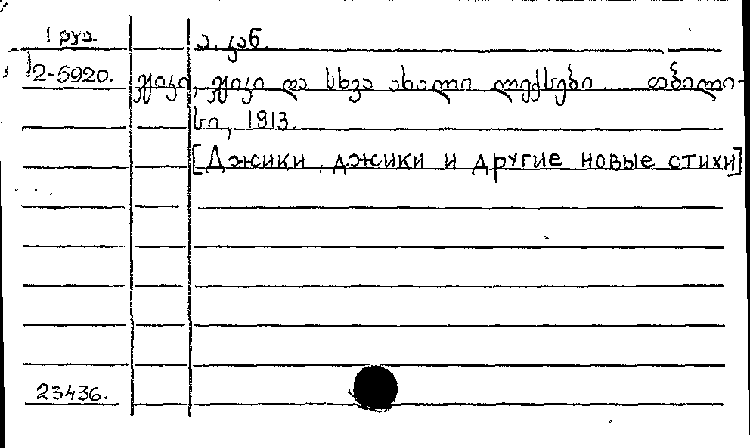 Груз. ა. კან.
2-5920. ჯიკი, ჯიკი და სხვა ახალი ლექსები. თბილი-
სი, 1913.
[Джики, джики и другие новые стихи]
23436.